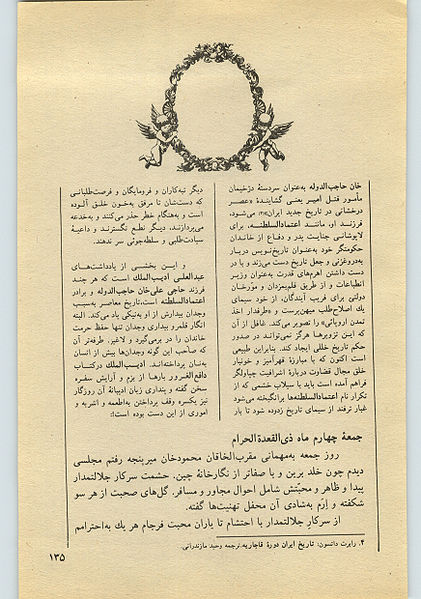 خان حاجب‌الدوله به‌عنوان سردستهٔ دژخیمان
مأمور قتل امیر یعنی گشایندهٔ «عصر
درخشانی در تاریخ جدید ایران»(۴) می‌شود،
فرزند او، مانند اعتمادالسلطنه، برای
لاپوشانی جنایت پدر و دفاع از خاندان
حکومتگر خود به‌عنوان تاریخ‌نویس دربار
به‌دروغزنی و جعل تاریخ دست می‌زند و با در
دست داشتن اهرم‌های قدرت به‌عنوان وزیر
انطباعات و از طریق قلمبمزدان و مورّخان
دولتی برای فریب آیندگان، از خود سیمای
یك اصلاح‌طلب میهن‌پرست و «طرفدار اخذ
تمدن اروپائی» را تصویر می‌کند. غافل از آن
که این تزویرها هرگز نمی‌تواند در صدور
حکم تاریخ خللی ایجاد کند. بنابراین طبیعی
است اکنون که با مبارزهٔ قهرآمیز و خونبار
خلق مجال قضاوت دربارهٔ اشرافیت چپاولگر
فراهم آمده است باید با سیلاب خشمی که از
تکرار نام اعتمادالسلطنه‌ها برانگیخته می‌شود
غبار ترفند از سیمای تاریخ زدوده شود تا بار
دیگر تبه‌کاران و فرومایگان و فرصت‌طلبانی
که دست‌شان تا مرفق به‌خون خلق آلوده
است و به‌هنگام خطر حذر می‌کنند و به‌خدعه
می‌پردازند، دیگر نطع نگسترند و داعیهٔ
سیادت‌طلبی و سلطه‌جوئی سر ندهند.
و این بخشی از یادداشت‌های
عبدالعلی ادیب‌الملك است که هر چند
فرزند حاجی علی‌خان حاجب‌الدوله و برادر
اعتمادالسلطنه است، تاریخ معاصر به‌سبب
وجدان بیدارش از او به‌نیکی یاد می‌کند. البته
انگار قلمرو بیداری وجدان تنها حفظ حرمت
خاندان را در برمی‌گیرد و لاغیر. طرفه‌تر آن
که صاحب این گونه وجدان‌ها بیش از انسان
به‌نان پرداخته‌اند. ادیب‌الملك در کتاب
دافع‌الغرور بارها از بزم و آرایش سفره
سخن گفته و پنداری زبان ادیبانهٔ آن روزگار
نیز یکسره وقف پرداختن به‌اطعمه و اشربه و
اموری از این دست بوده است:
جمعهٔ چهارم ماه ذی‌القعدة‌الحرام
روز جمعه به‌مهمانی مقرب‌الخاقان محمودخان میرپنجه رفتم مجلسی
دیدم چون خلد برین و با صفاتر از نگارخانهٔ چین. حشمت سرکار جلالتمدار
پیدا و ظاهر و محبّتش شامل احوال مجاور و مسافر. گل‌های صحبت از هر سو
شکفته و اِرَم به‌شادی آن محفل تهنیت‌ها گفته.
از سرکارِ جلالتمدار با احتشام تا یاران محبت فرجام هر یك به‌احترامم
۴. رابرت داتسون: تاریخ ایران دورهٔ قاجاریه. ترجمه وحید مازندرانی.
۱۳۵